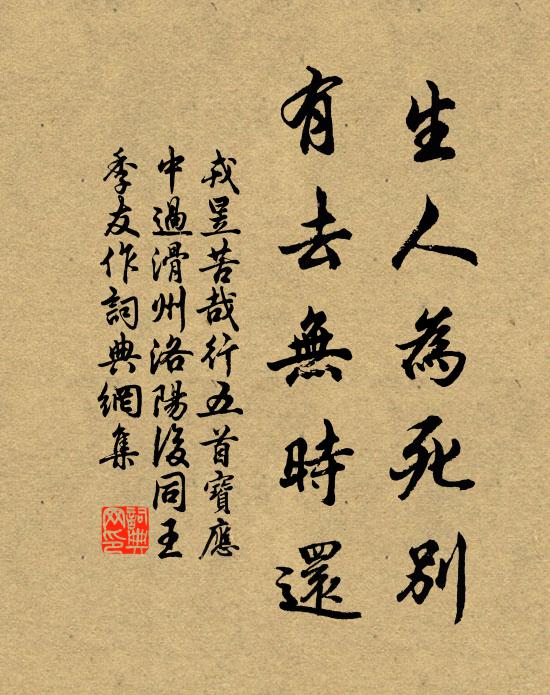 生人為死別
有去無時還
戎昱苦哉行五首寶應
中過滑州洛陽後同王
季友作詞典網集
詞典網印